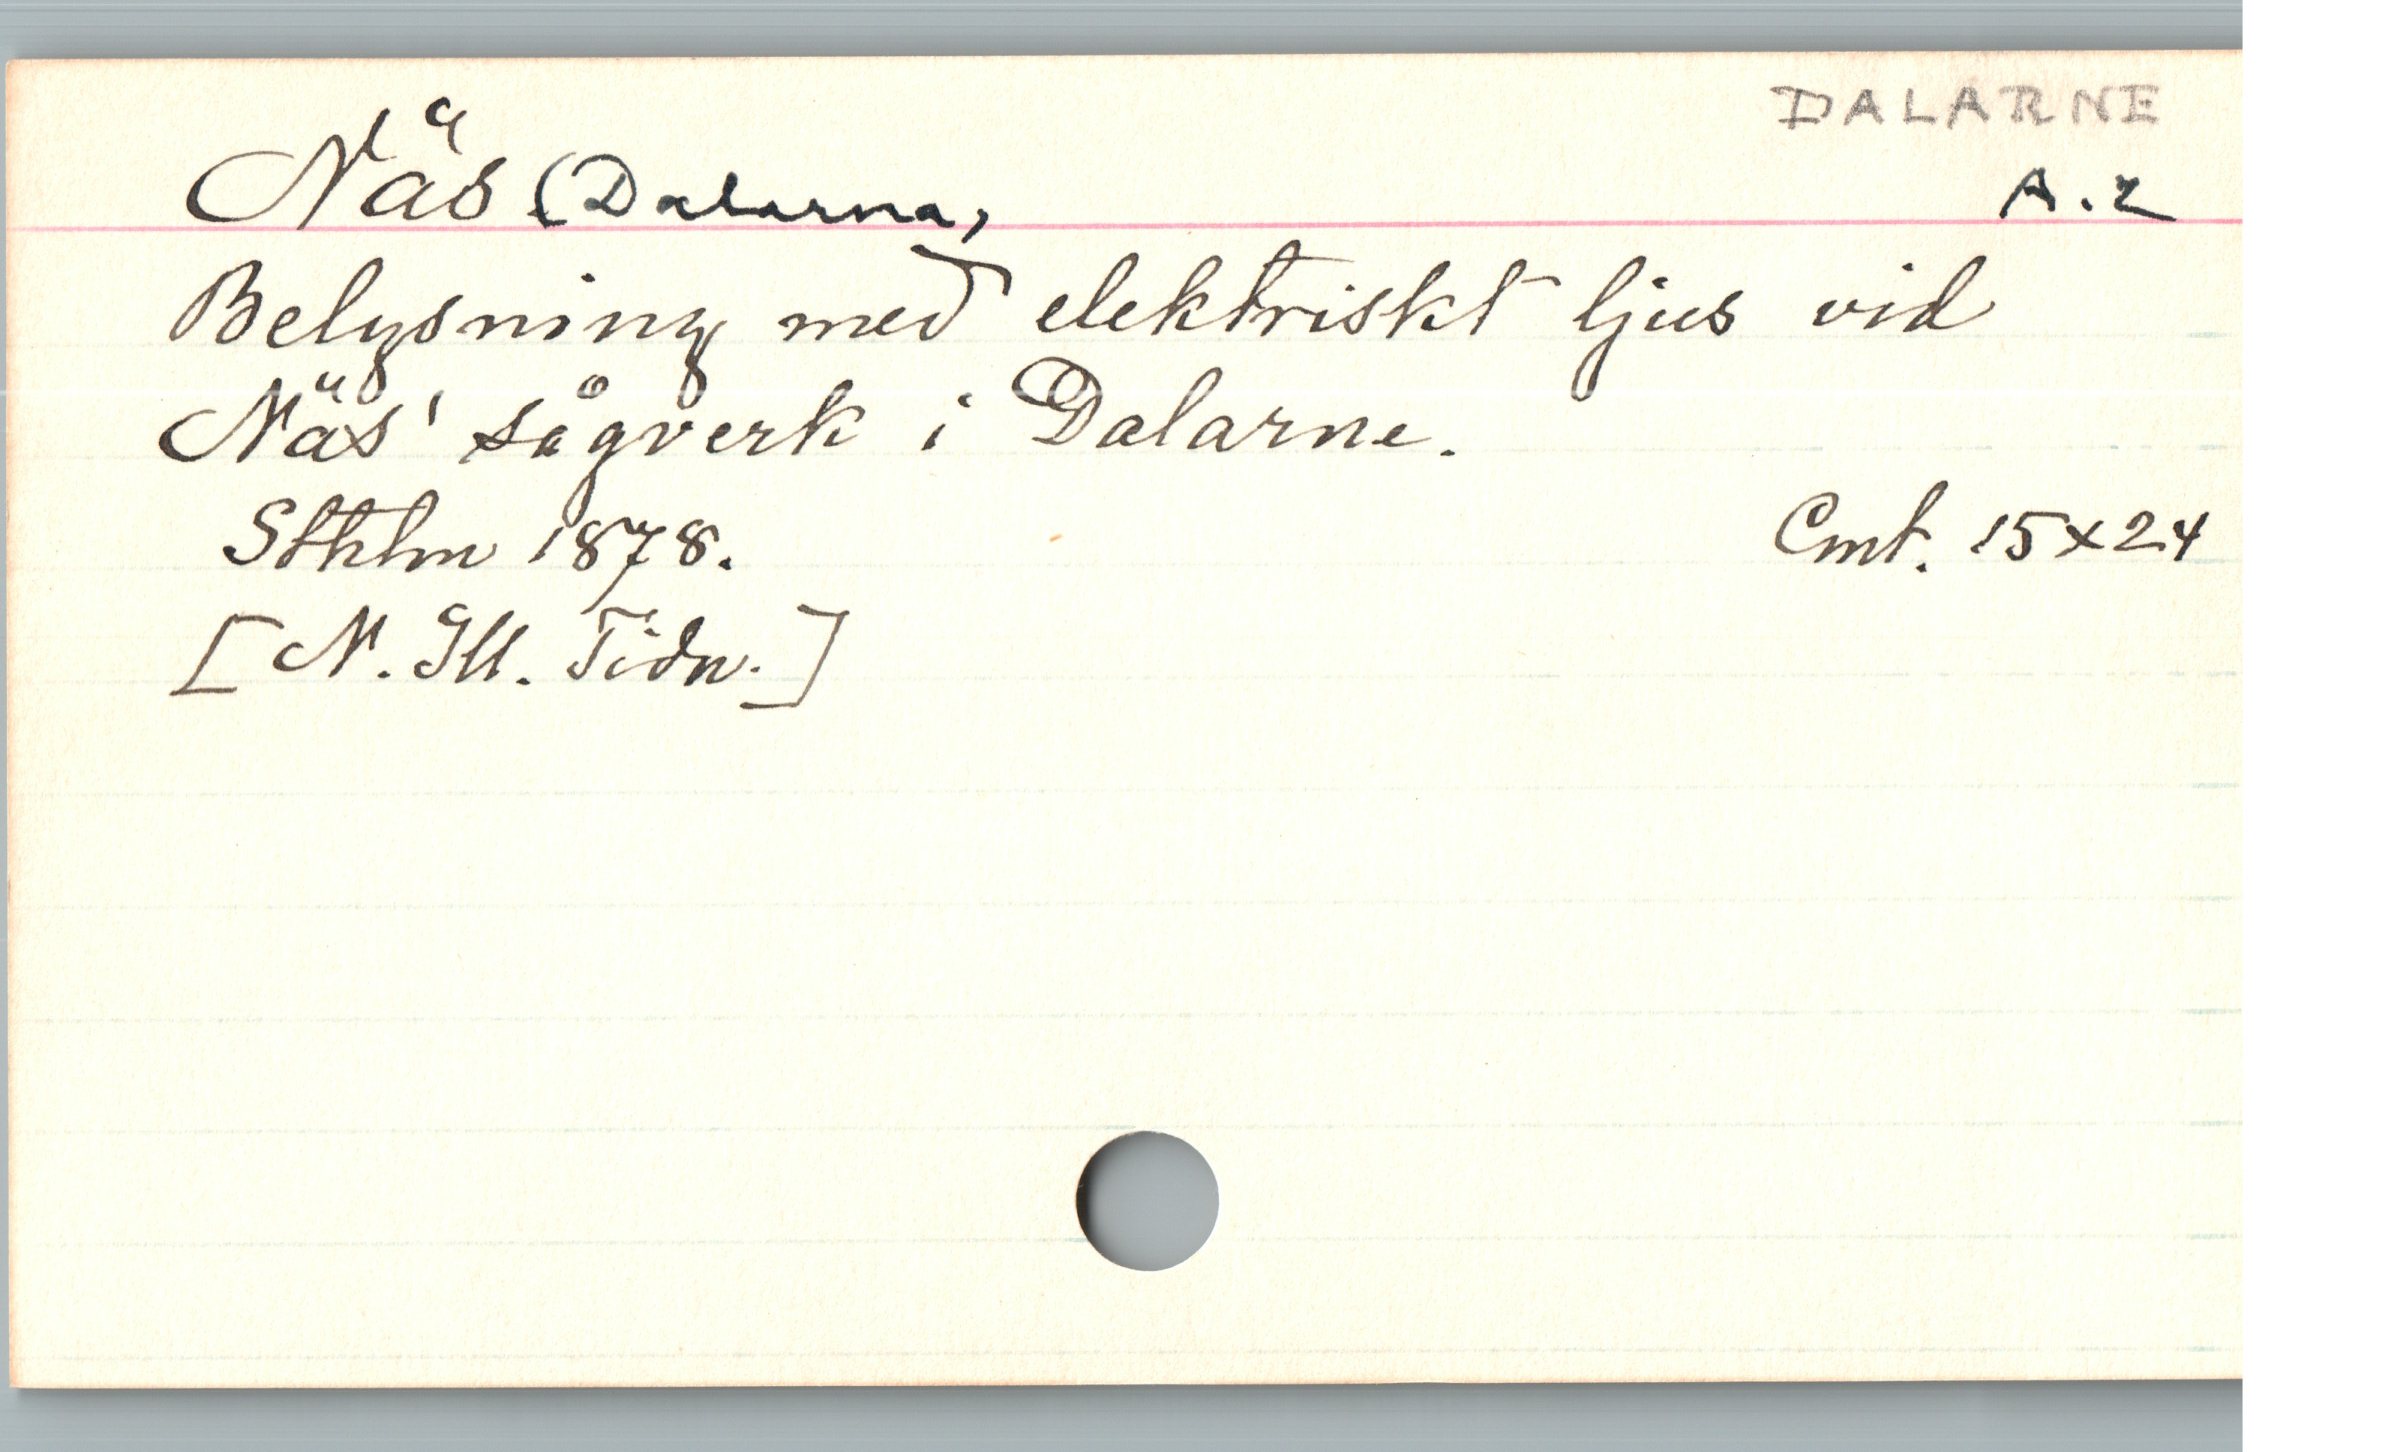 DALARNE
Näs (Dalarna) A.2
Belysning med elektriskt ljus vid
Näs' sågverk i Dalarne.
Sthlm 1878. Cmt. 15x24
[N. Ill. Tidn.]